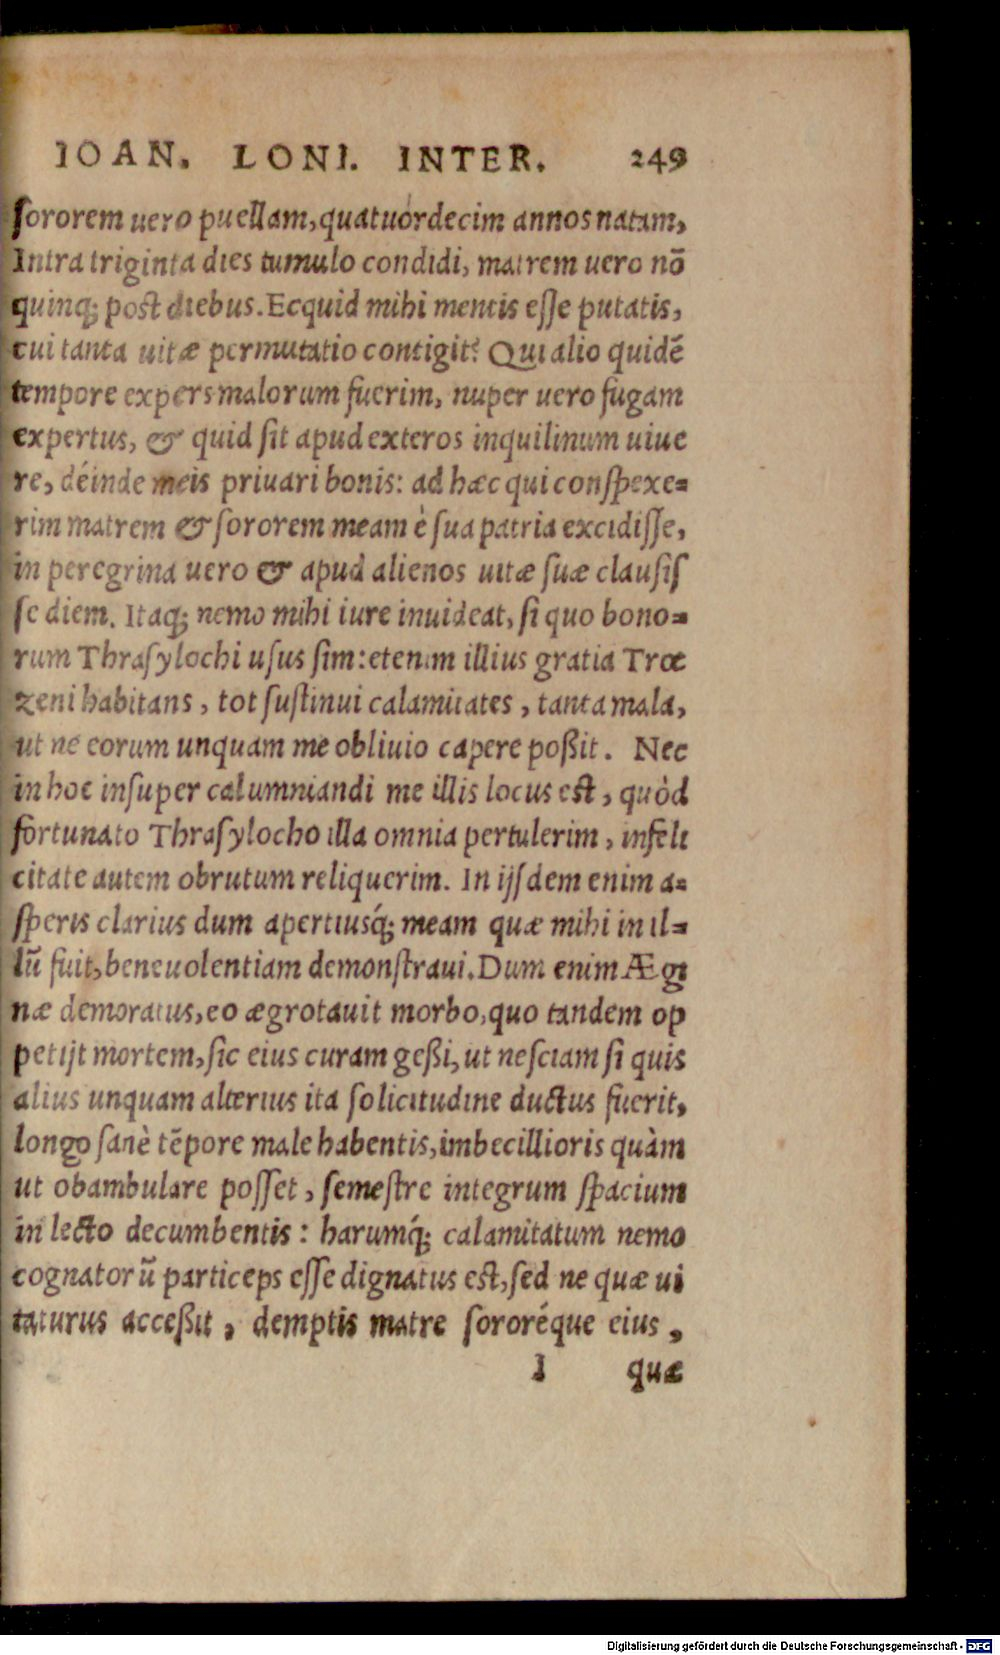 IOAN. LONI. INTER. 249
ſororem uero puellam, quatuordecim annos natam,
Intra triginta dies tumulo condidi, matrem uero nõ
quinq; post diebus. Ecquid mihi mentis eſſe putatis,
cui tanta uitæ permutatio contigit? Qui alio quidẽ
tempore expers malorum fuerim, nuper uero fugam
expertus, & quid ſit apud exteros inquilinum uiue
re, déinde meis priuari bonis: ad hæc qui conſpexe=
rim matrem & ſororem meam è ſua patria excidiſſe,
in peregrina uero & apud alienos uitæ ſuæ clauſiſ
ſe diem. Itaq; nemo mihi iure inuideat, ſi quo bono=
rum Thraſylochi uſus ſim: etenim illius gratia Trœ
zeni habitans, tot ſuſtinui calamitates, tanta mala,
ut ne eorum unquam me obliuio capere poßit. Nec
in hoc inſuper calumniandi me illis locus est, quòd
fortunato Thraſylocho illa omnia pertulerim, infeli
citate autem obrutum reliquerim. In ijſdem enim a=
ſperis clarius dum apertiusq́; meam quæ mihi in il=
lũ fuit, beneuolentiam demonſtraui. Dum enim Ægi
næ demoratus, eo ægrotauit morbo, quo tandem op
petijt mortem, ſic eius curam geßi, ut neſciam ſi quis
alius unquam alterius ita ſolicitudine ductus fuerit,
longo ſanè tẽpore male habentis, imbecillioris quàm
ut obambulare poſſet, ſemeſtre integrum ſpacium
in lecto decumbentis: harumq́; calamitatum nemo
cognatorũ particeps eſſe dignatus est, ſed ne quæ ui
taturus acceßit, demptis matre ſororéque eius,
I quæ
Digitalisierung gefördert durch die Deutsche Forschungsgemeinschaft - DFG